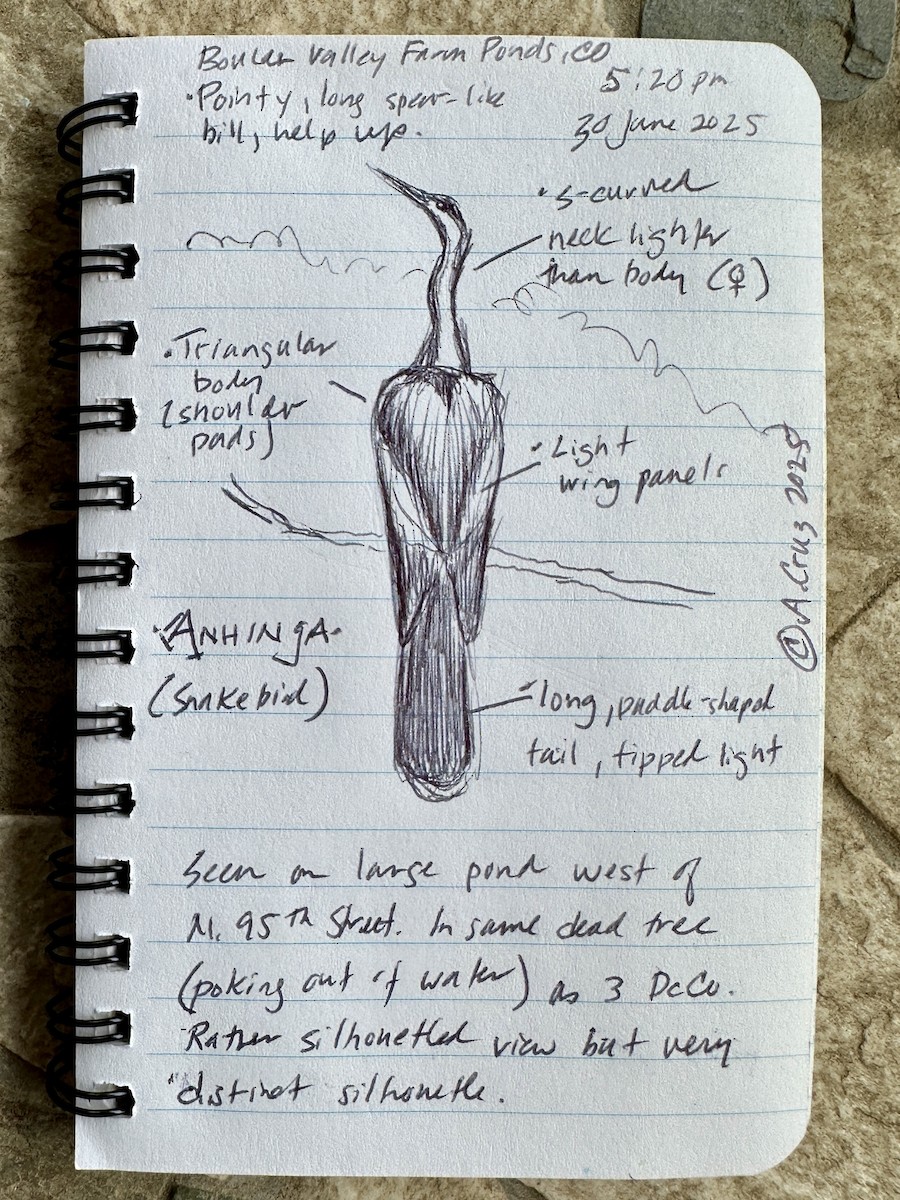 Boulder Valley Farm Ponds, CO
5:20 pm
30 June 2025
• Pointy, long spear-like
bill, help up.
• s-curved
neck lighter
than body (♀)
• Triangular
body
(shoulder
pads)
• Light
wing panels
• ANHINGA •
(Snakebird)
• long, paddle-shaped
tail, tipped light
© A. Cruz 2025
Seen on large pond west of
N. 95th Street. In same dead tree
(poking out of water) as 3 DcCo.
Rather silhouetted view but very
distinct silhouette.